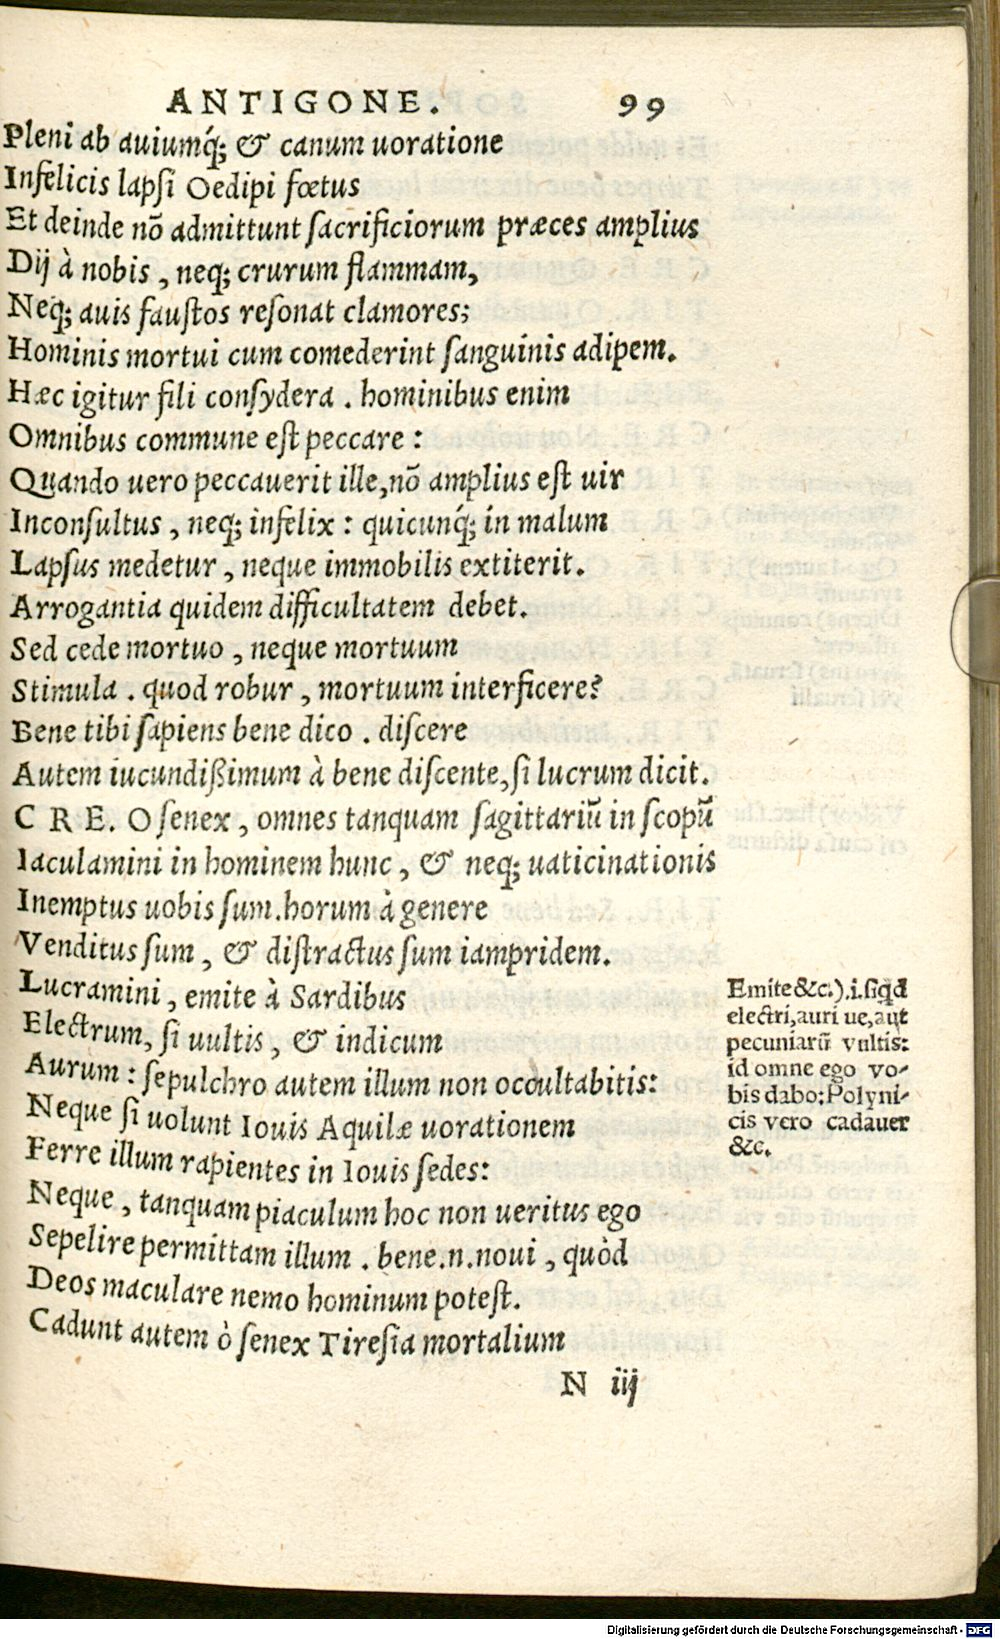 ANTIGONE. 99
Pleni ab auiumq́; & canum uoratione
Infelicis lapsi Oedipi fœtus
Et deinde nō admittunt sacrificiorum præces amplius
Dij à nobis, neq; crurum flammam,
Neq; auis faustos resonat clamores;
Hominis mortui cum comederint sanguinis adipem.
Hæc igitur fili consydera. hominibus enim
Omnibus commune est peccare:
Quando uero peccauerit ille, nō amplius est uir
Inconsultus, neq; infelix: quicunq́; in malum
Lapsus medetur, neque immobilis extiterit.
Arrogantia quidem difficultatem debet.
Sed cede mortuo, neque mortuum
Stimula. quod robur, mortuum interficere?
Bene tibi sapiens bene dico. discere
Autem iucundißimum à bene discente, si lucrum dicit.
CRE. O senex, omnes tanquam sagittariū in scopū
Iaculamini in hominem hunc, & neq; uaticinationis
Inemptus uobis sum. horum à genere
Venditus sum, & distractus sum iampridem.
Lucramini, emite à Sardibus
Electrum, si uultis, & indicum
Aurum: sepulchro autem illum non occultabitis:
Neque si uolunt Iouis Aquilæ uorationem
Ferre illum rapientes in Iouis sedes:
Neque, tanquam piaculum hoc non ueritus ego
Sepelire permittam illum. bene.n.noui, quòd
Deos maculare nemo hominum potest.
Cadunt autem ò senex Tiresia mortalium
N iij
Emite &c.).i.siqd
electri, auri ue, aut
pecuniarū vultis:
id omne ego vo-
bis dabo: Polyni-
cis vero cadauer
&c.
Digitalisierung gefördert durch die Deutsche Forschungsgemeinschaft - DFG